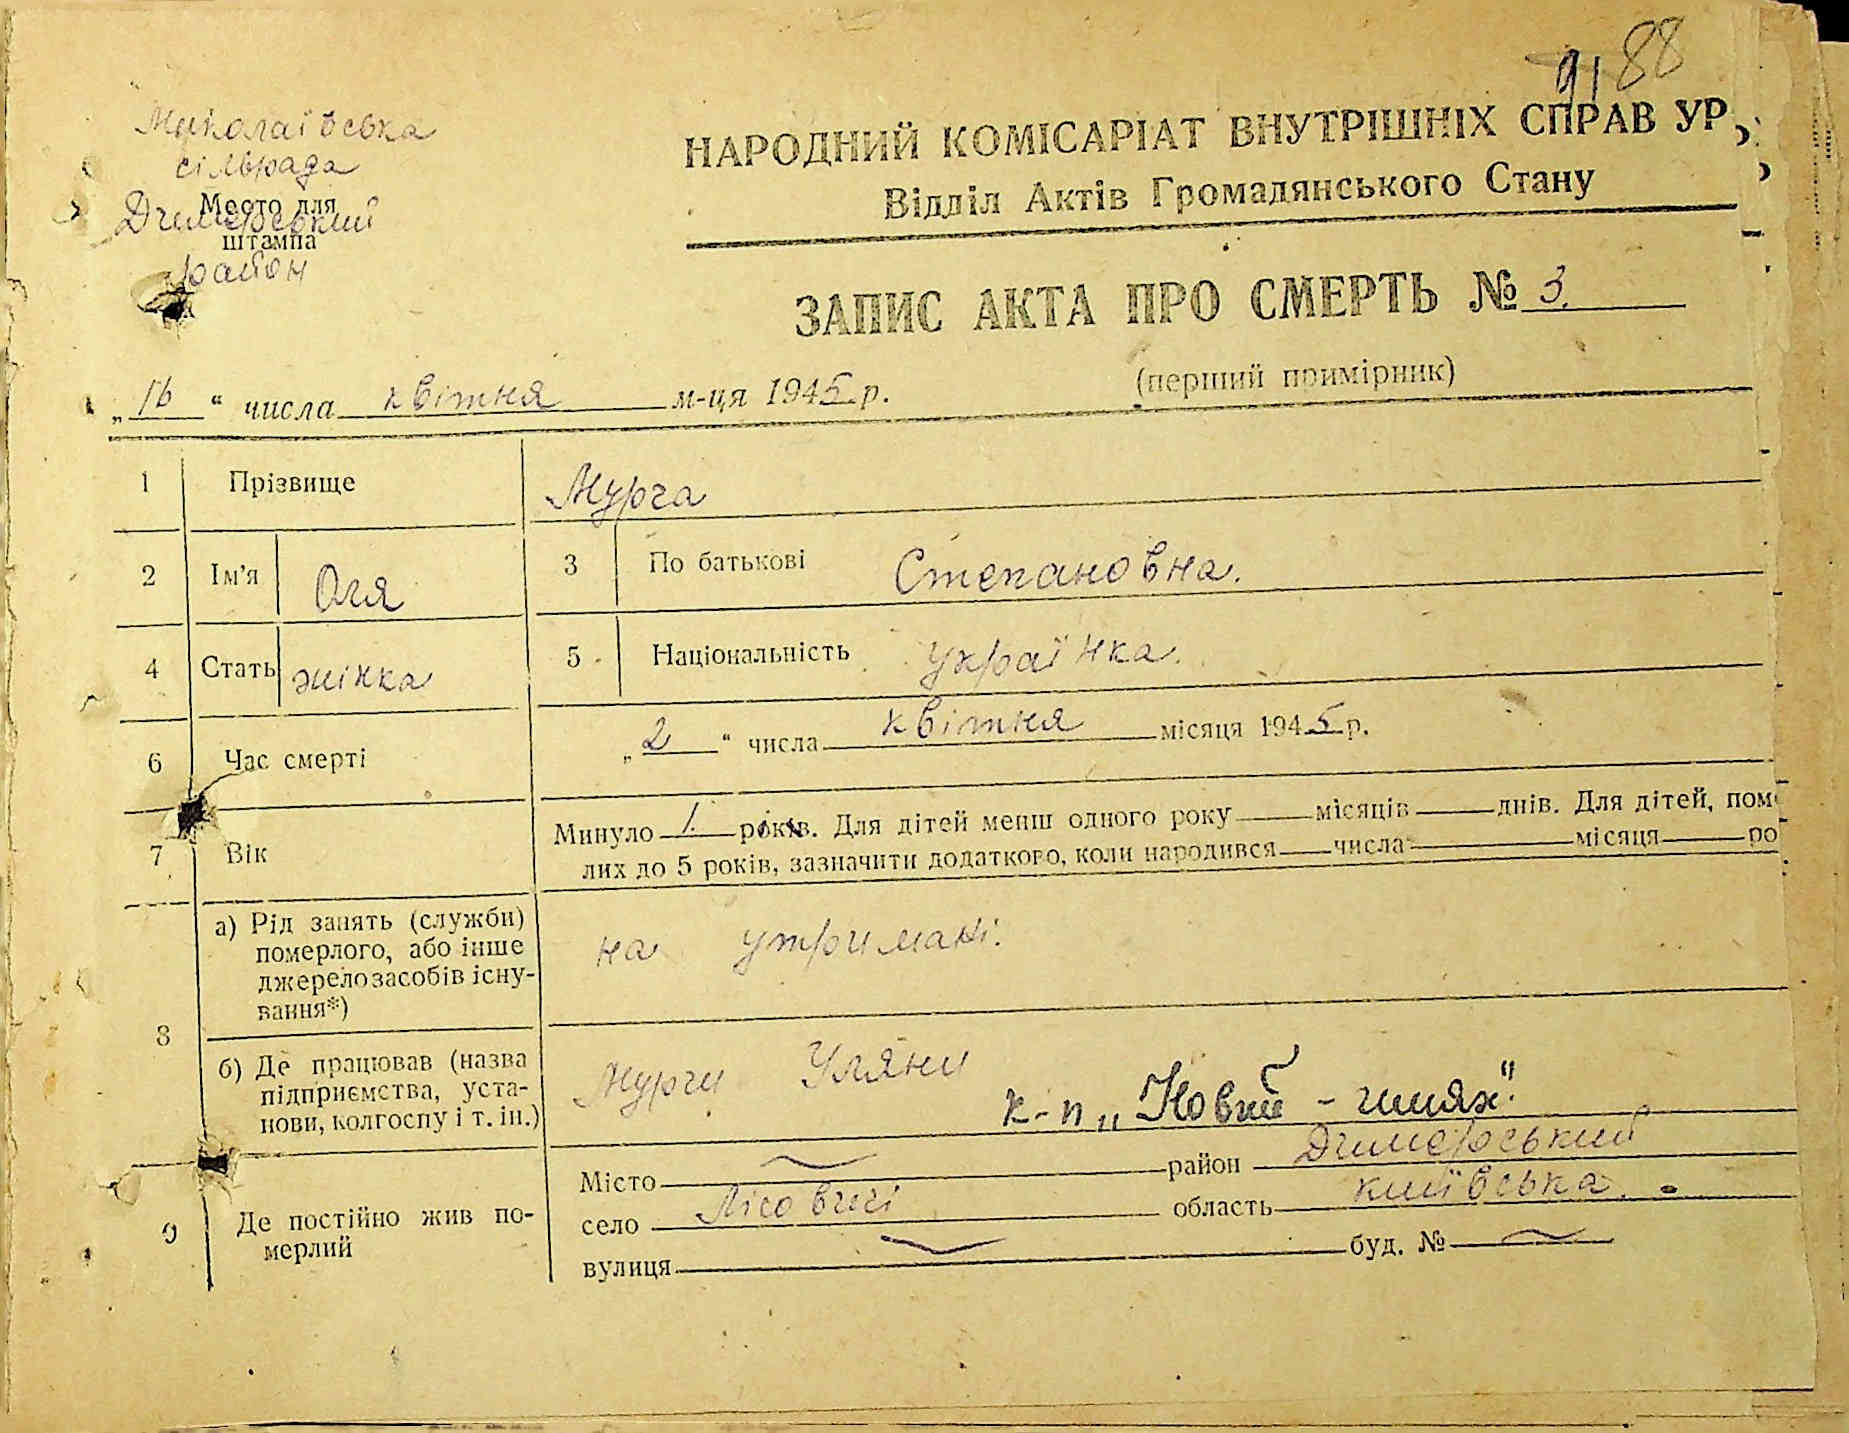 91 88
Миколаївська
сільрада
Место для
Димерський
штампа
район
НАРОДНИЙ КОМІСАРІАТ ВНУТРІШНІХ СПРАВ УР
Відділ Актів Громадянського Стану
ЗАПИС АКТА ПРО СМЕРТЬ № 3.
(перший примірник)
„16“ числа квітня м-ця 1945 р.
1 Прізвище Мурга
2 Ім’я Оля 3 По батькові Степановна.
4 Стать жінка 5 Національність українка.
6 Час смерті „2“ числа квітня місяця 1945 р.
7 Вік Минуло 1. років. Для дітей менш одного року місяців днів. Для дітей, пом
лих до 5 років, зазначити додатково, коли народився числа місяця ро
8 а) Рід занять (служби)
померлого, або інше
джерело засобів існу-
вання*)
на утримані.
б) Де працював (назва
підприємства, уста-
нови, колгоспу і т. ін.)
Мурги Уляни
к-п „Новий - шлях".
9 Де постійно жив по-
мерлий
Місто район Димерський
село Лісовичі область київська.
вулиця буд. №